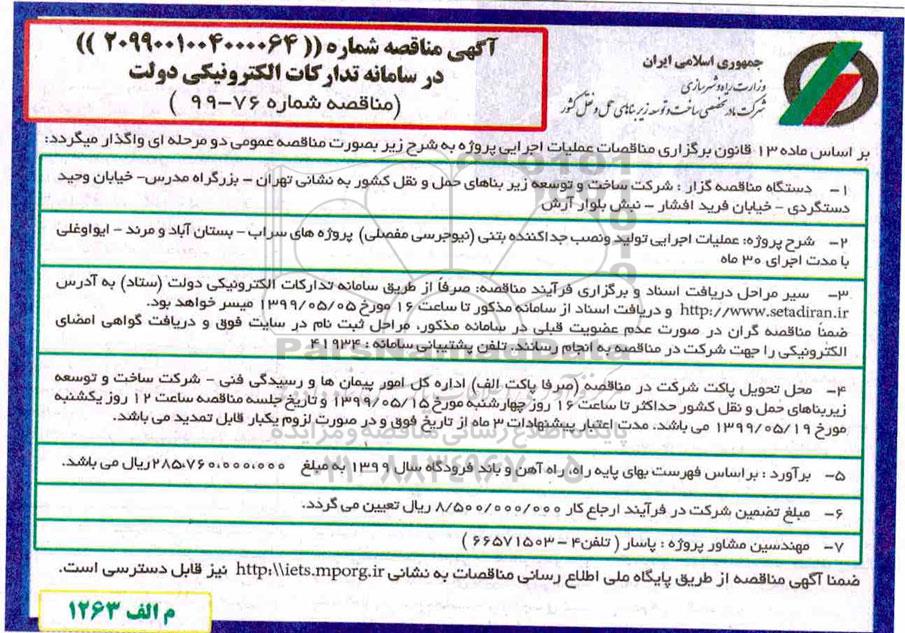 جمهوری اسلامی ایران
وزارت راه و شهرسازی
شرکت مادر تخصصی ساخت و توسعه زیر بناهای حمل و نقل کشور
آگهی مناقصه شماره (( ۲۰۹۹۰۰۱۰۰۴۰۰۰۰۶۴ ))
در سامانه تدارکات الکترونیکی دولت
(مناقصه شماره ۷۶-۹۹ )
بر اساس ماده ۱۳ قانون برگزاری مناقصات عملیات اجرایی پروژه به شرح زیر بصورت مناقصه عمومی دو مرحله ای واگذار میگردد:
۱- دستگاه مناقصه گزار : شرکت ساخت و توسعه زیر بناهای حمل و نقل کشور به نشانی تهران – بزرگراه مدرس- خیابان وحید
دستگردی – خیابان فرید افشار – نبش بلوار آرش
۲- شرح پروژه: عملیات اجرایی تولید ونصب جداکننده بتنی (نیوجرسی مفصلی) پروژه های سراب – بستان آباد و مرند – ایواوغلی
با مدت اجرای ۳۰ ماه
۳- سیر مراحل دریافت اسناد و برگزاری فرآیند مناقصه: صرفاً از طریق سامانه تدارکات الکترونیکی دولت (ستاد) به آدرس
http://www.setadiran.ir و دریافت اسناد از سامانه مذکور تا ساعت ۱۶ مورخ ۱۳۹۹/۰۵/۰۵ میسر خواهد بود.
ضمناً مناقصه گران در صورت عدم عضویت قبلی در سامانه مذکور، مراحل ثبت نام در سایت فوق و دریافت گواهی امضای
الکترونیکی را جهت شرکت در مناقصه به انجام رسانند. تلفن پشتیبانی سامانه : ۴۱۹۳۴
۴- محل تحویل پاکت شرکت در مناقصه (صرفا پاکت الف) اداره کل امور پیمان ها و رسیدگی فنی – شرکت ساخت و توسعه
زیربناهای حمل و نقل کشور حداکثر تا ساعت ۱۶ روز چهارشنبه مورخ ۱۳۹۹/۰۵/۱۵ و تاریخ جلسه مناقصه ساعت ۱۲ روز یکشنبه
مورخ ۱۳۹۹/۰۵/۱۹ می باشد. مدت اعتبار پیشنهادات ۳ ماه از تاریخ فوق و در صورت لزوم یکبار قابل تمدید می باشد.
۵- برآورد : براساس فهرست بهای پایه راه، راه آهن و باند فرودگاه سال ۱۳۹۹ به مبلغ ۲۸۵،۷۶۰،۰۰۰،۰۰۰ ریال می باشد.
۶- مبلغ تضمین شرکت در فرآیند ارجاع کار ۸/۵۰۰/۰۰۰/۰۰۰ ریال تعیین می گردد.
۷- مهندسین مشاور پروژه : پاسار ( تلفن ۴ – ۶۶۵۷۱۵۰۳ )
ضمنا آگهی مناقصه از طریق پایگاه ملی اطلاع رسانی مناقصات به نشانی http:\\iets.mporg.ir نیز قابل دسترسی است.
م الف ۱۲۶۳
ParsNamadData
پایگاه اطلاع رسانی مناقصه و مزایده
۰۲۱-۸۸۳۴۹۶۷۰-۵